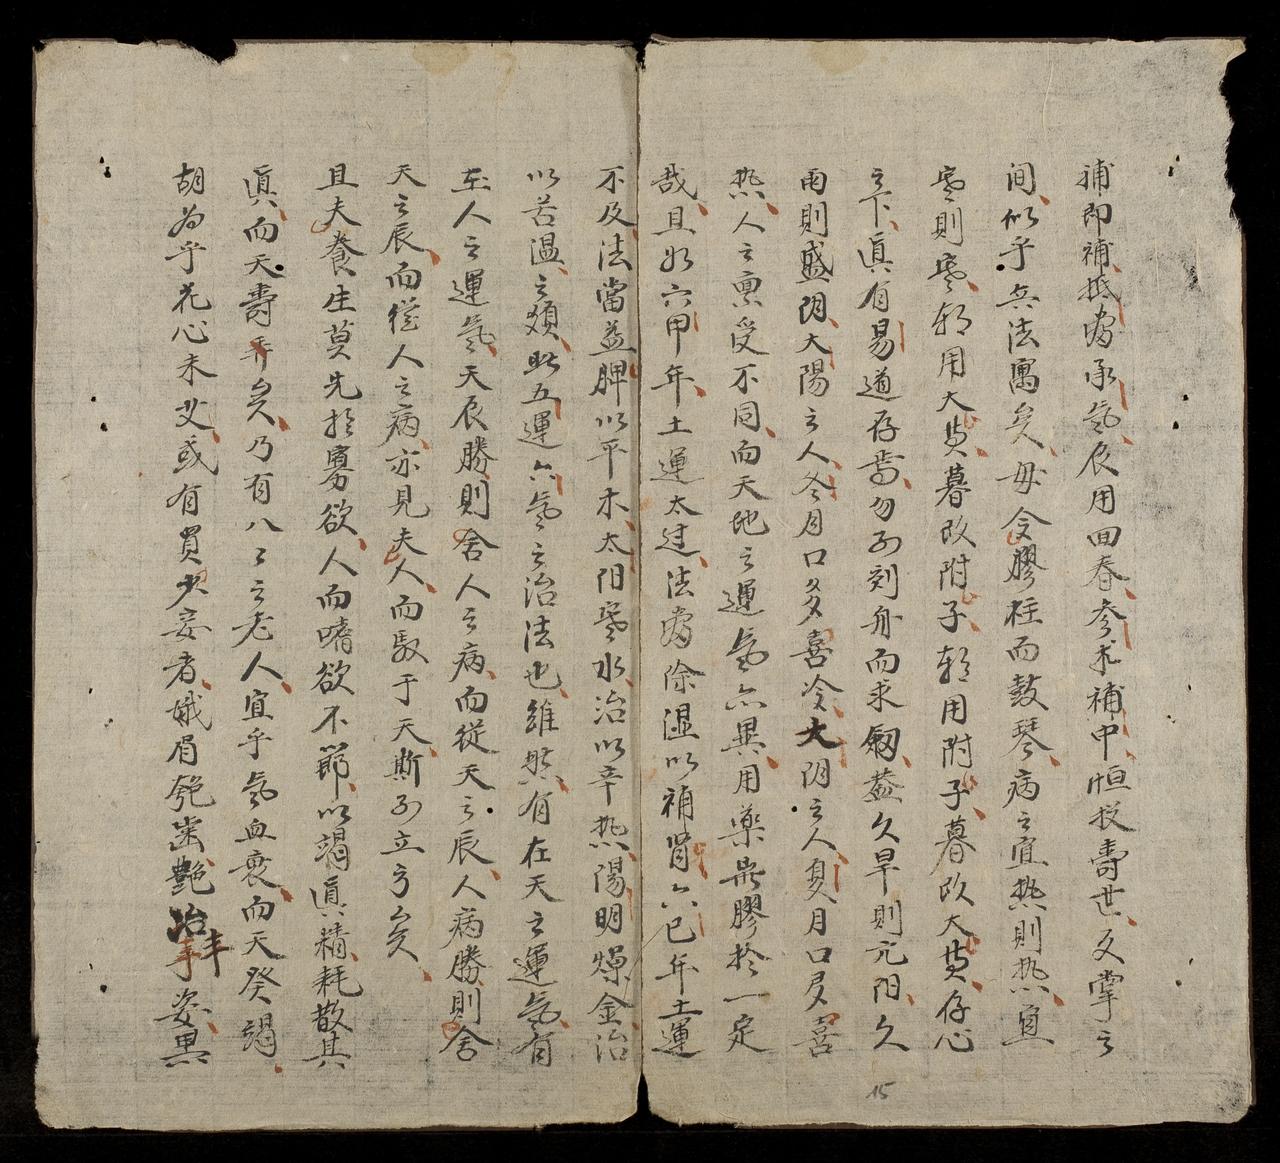 補即補抵爲承氣辰用回春參朮補中恒投壽世反掌之
间似乎兵法寓矣毋令膠柱而鼓琴病之宜热則热宜
寒則寒朝用大黄暮改附子朝用附子暮改大黄存心
之下眞有易道存焉勿刻舟而求劔盖久旱則元阳久
雨則盛阴大陽之人冬月口多喜冷大阴之人夏月口多喜
热人之禀受不同而天地之運氣亦異用藥無膠於一定
哉且如六甲年土運太过法爲除湿以補腎六已年土運
不及法當益脾以平木太阳寒水治以辛热陽明燥金治
以苦温之類此五運六氣之治法也雖然有在天之運氣有
在人之運氣天辰勝則舍人之病而從天之辰人病勝則舍
天之辰而從人之病亦見夫人而馭于天斯立亏矣
且夫養生莫先於寡欲人而嗜欲不節以竭眞精耗散其
眞而夭壽弄矣乃有八〻之老人宜乎氣血衰而天癸竭
胡为乎花心未艾或有買少妾者娥眉皓齒艷冶丰姿黑
15